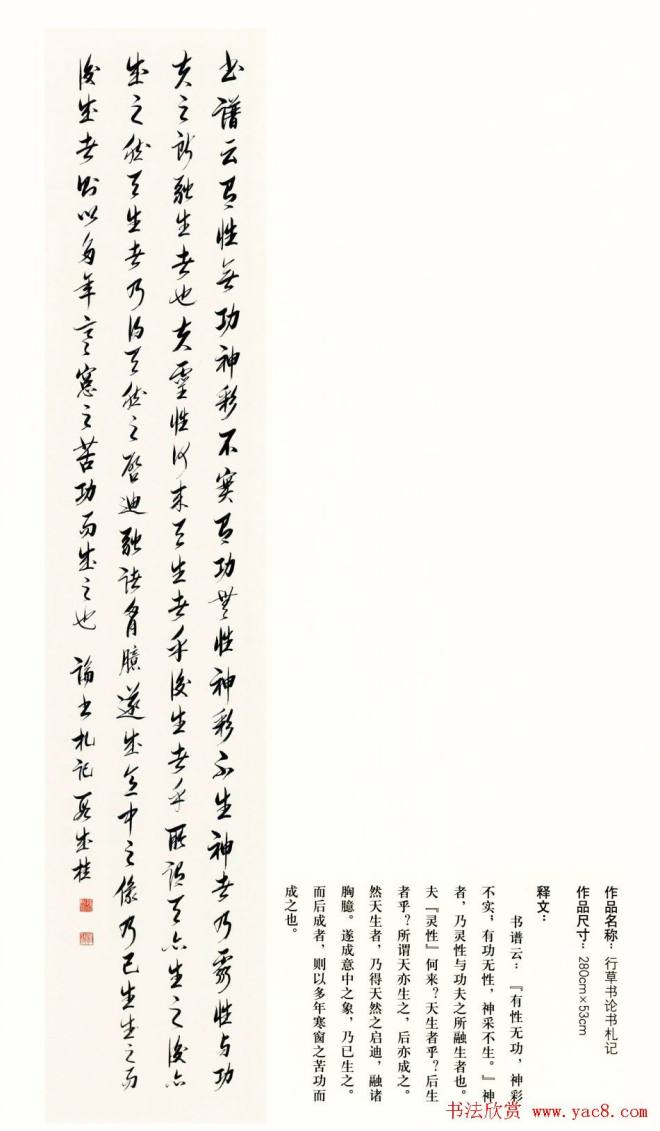 作品名称：行草书论书札记
作品尺寸：280cm×53cm
释文：
书谱云：『有性无功，神彩
不实；有功无性，神采不生。』神
者，乃灵性与功夫之所融生者也。
夫『灵性』何来？天生者乎？后生
者乎？所谓天亦生之，后亦成之。
然天生者，乃得天然之启迪，融诸
胸臆。遂成意中之象，乃已生之。
而后成者，则以多年寒窗之苦功而
成之也。
书譜云有性無功神彩不实有功無性神彩不生神者乃灵性与功
夫之所融生者也夫靈性何来天生者乎後生者乎所謂天亦生之後亦
成之然天生者乃得天然之啓迪融诸胷臆遂成意中之像乃已生生之而
後成者则以多年寒窓之苦功而成之也 論书札记 段成桂
书法欣赏 www.yac8.com